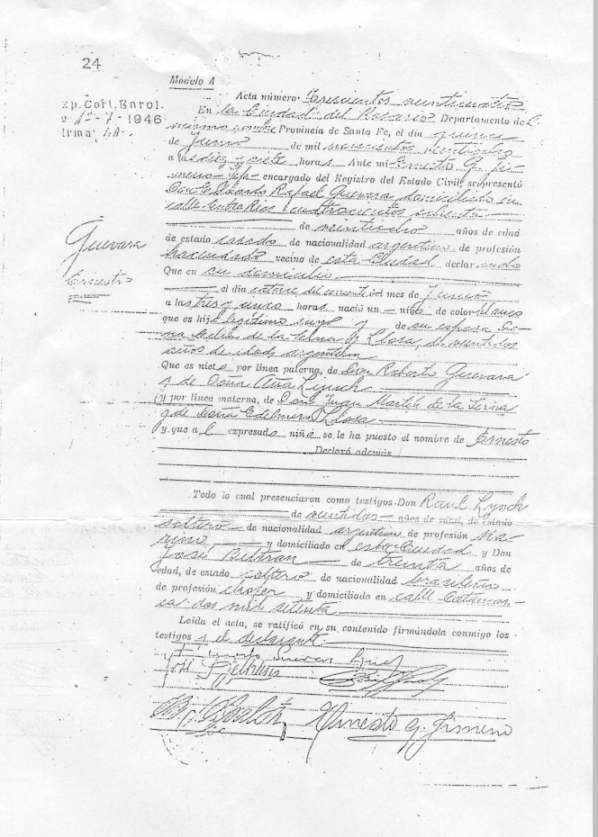 24
Modelo A
Acta número: Trescientos veinticuatro
Exp. Céd. Enrol.
1946
En la Ciudad del Rosario Departamento del
mismo nombre Provincia de Santa Fe, el día quince
de Junio de mil novecientos veintiocho
a las diez y siete horas Ante mi Ernesto G. Ji-
meno Jefe encargado del Registro del Estado Civil, se presentó
Don Ernesto Rafael Guevara domiciliado en
calle Entre Rios cuatrocientos ochenta
de veintiocho años de edad
de estado casado de nacionalidad argentino de profesión
hacendado vecino de esta Ciudad declarando
Guevara
Ernesto
Que en su domicilio
el día catorce del corriente del mes de Junio
a las tres y cinco horas nació un niño de color blanco
que es hijo legítimo suyo y de su esposa Do-
ña Celia de la Serna y Llosa, de veintidos
años de edad argentina
Que es nieto por línea paterna, de Don Roberto Guevara
y de Doña Ana Lynch
y por línea materna, de Don Juan Martín de la Serna
y de Doña Edelmira Llosa
y que al expresado niño se le ha puesto el nombre de Ernesto
Declaró además
Todo lo cual presenciaron como testigos Don Raul Lynch
de veintidos años de edad, de estado
soltero de nacionalidad argentino de profesión Ma-
rino y domiciliado en esta Ciudad y Don
José Beltran de treinta años de
edad, de estado soltero de nacionalidad brasileña
de profesión chofer y domiciliado en calle Catamar-
ca dos mil setenta
Leída el acta, se ratificó en su contenido firmándola conmigo los
testigos y el declarante
Ernesto G. Jimeno